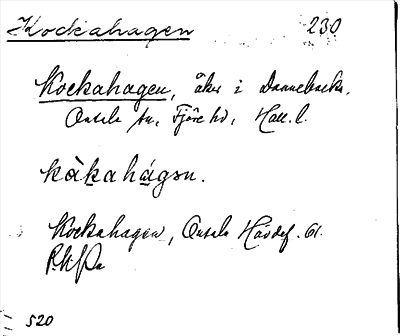 Kockahagen 230
Kockahagen, åker i Dannebacka.
Onsala sn, Fjäre hd, Hall. l.
kàkahágən.
Kockahagen, Onsala Havdef. 61.
520